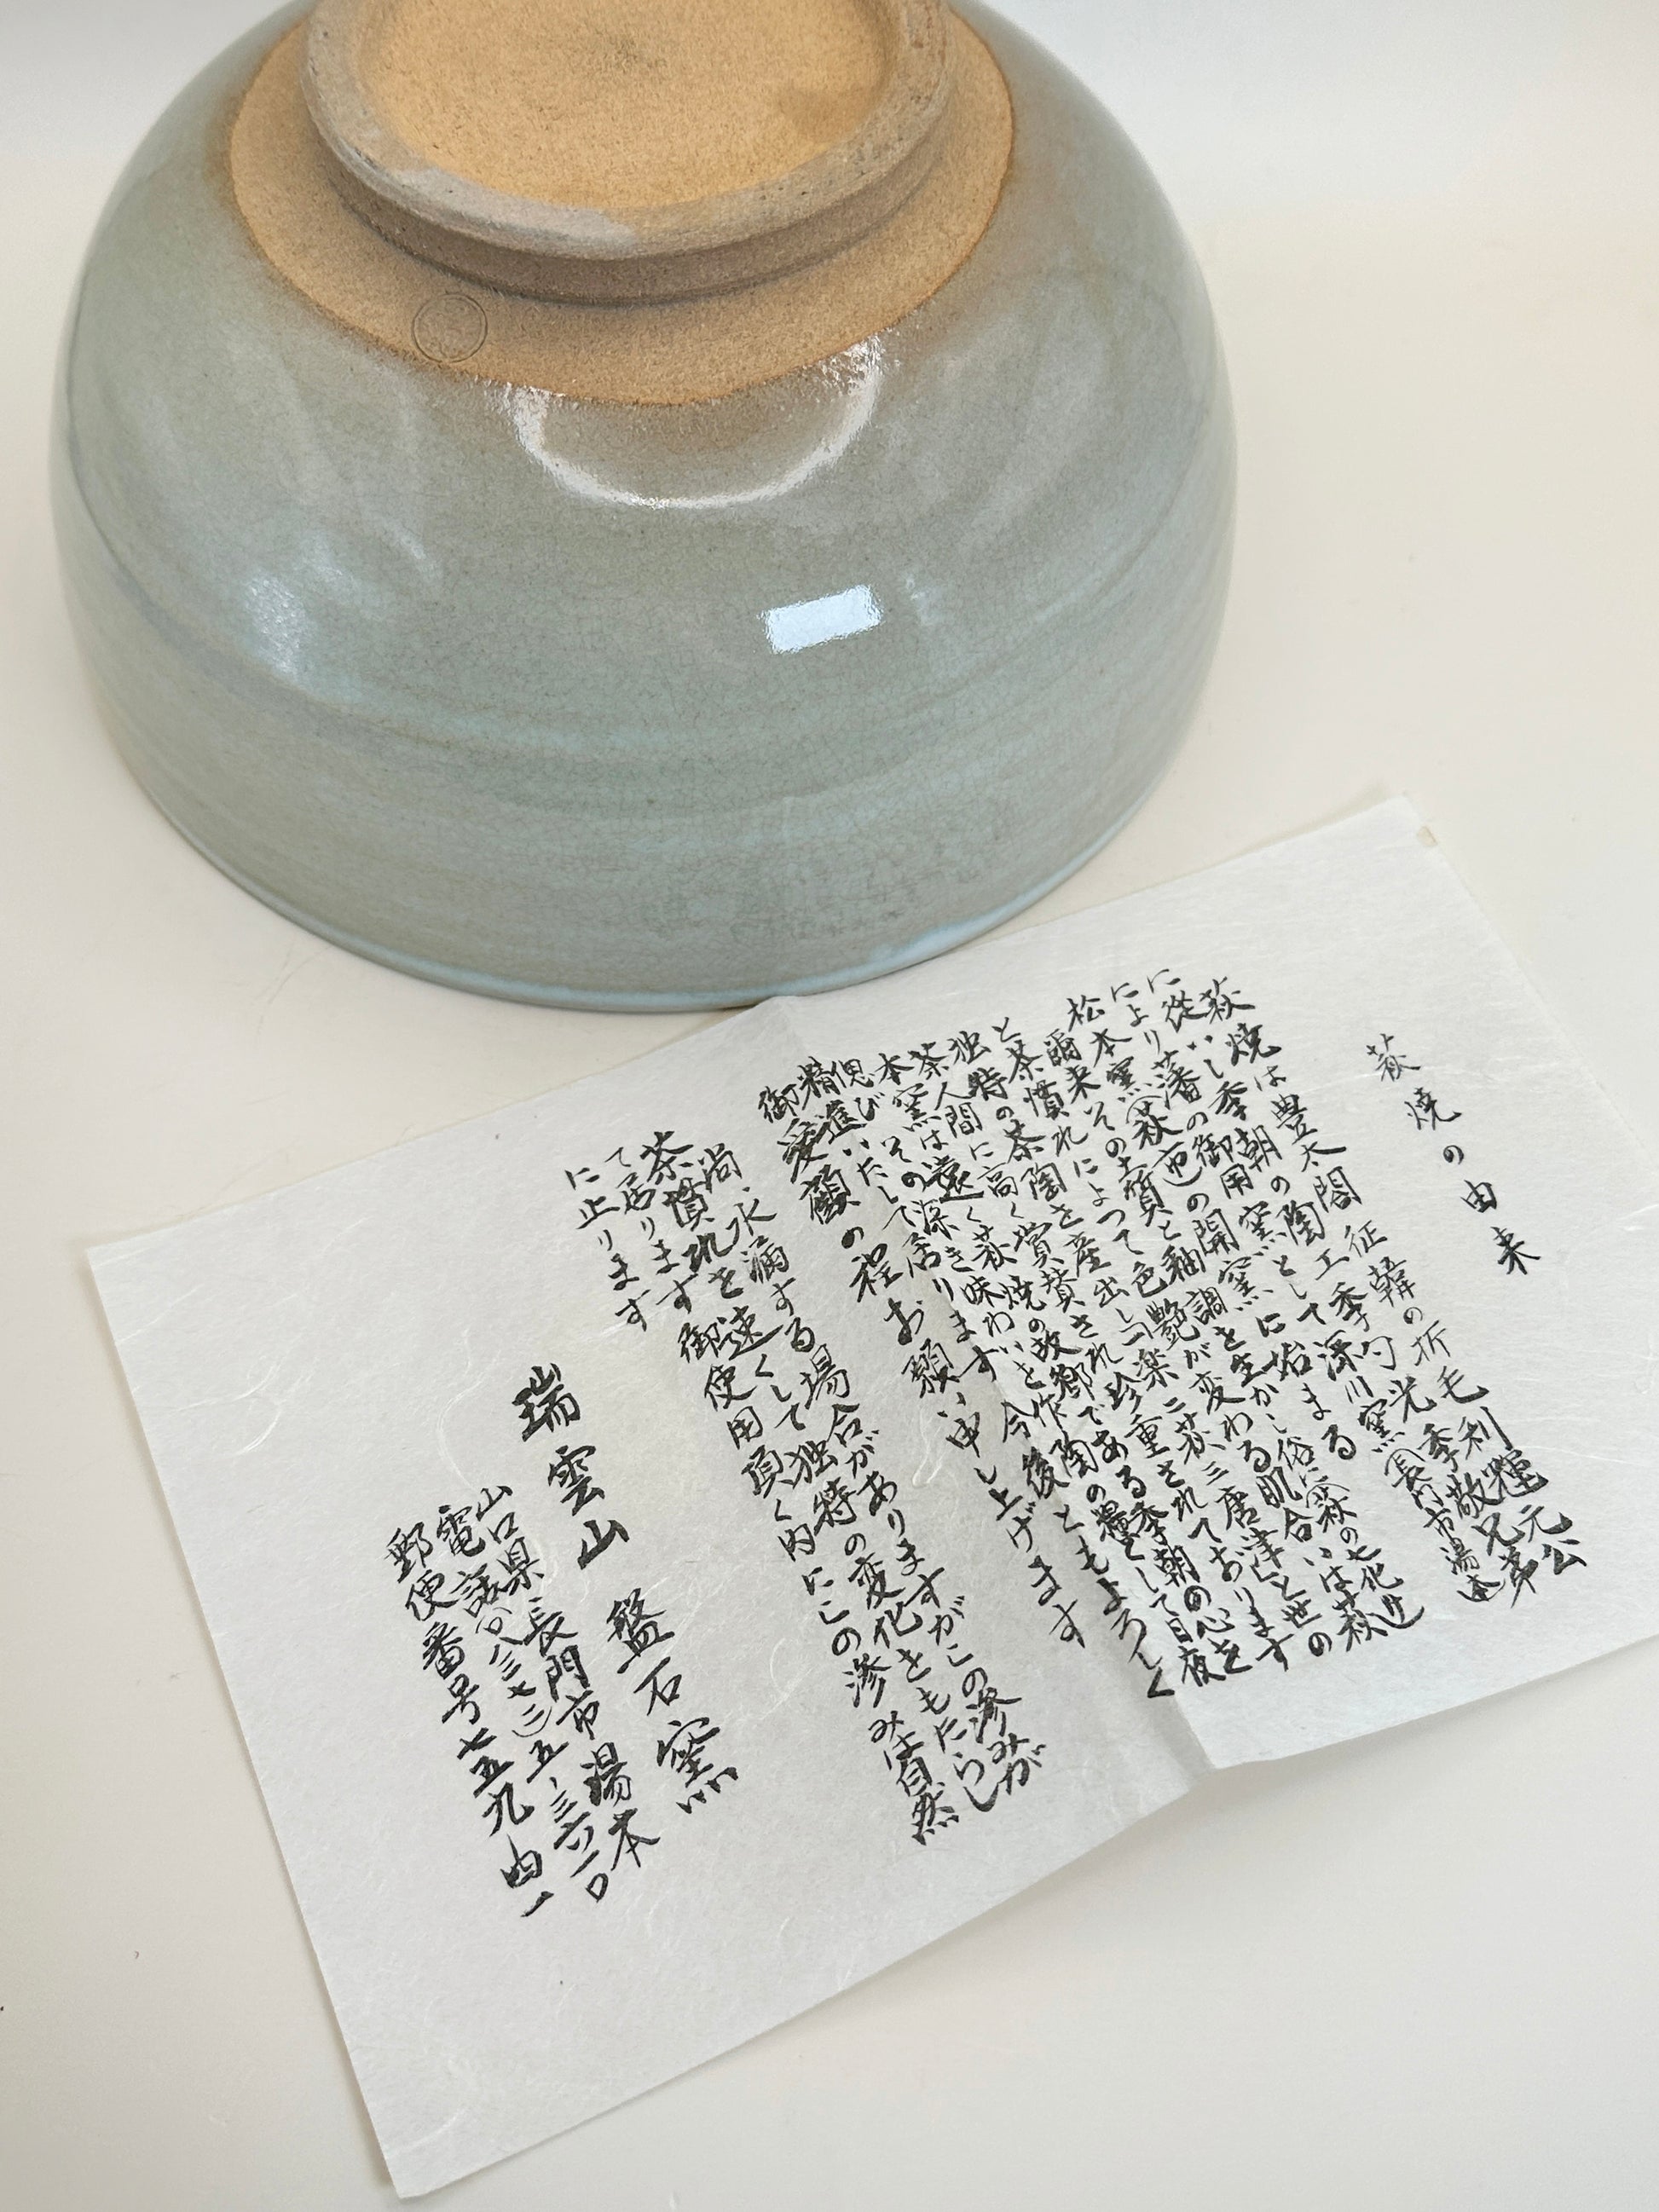 萩焼の由来
萩焼は豊太閤征韓の折毛利輝元公
に従いし李朝の陶工李勺光李敬兄弟
により藩の御用窯として深川窯(長門市湯本)
松本窯(萩市)の開窯に始まる
爾来その土質と釉調を生かし俗に萩の七化近
と茶慣れによって色艶が変わる肌合いは萩
独特の茶陶を産出し「一楽二萩三唐津」と世の
茶人間に高く賞賛され珍重されております
本窯は遠く萩焼の故郷である李朝の心を
偲びその深き味わいを作陶の糧として日夜
精進いたして居ります今後ともよろしく
御愛顧の程お願い申し上げます
尚、水滴する場合がありますがこの滲みが
茶慣れを速くして独特の変化をもたらし
て居ります御使用頂く内にこの滲みは自然
に止ります
瑞雲山 盤石窯
山口県長門市湯本
電話(〇八三七二)五、三六一〇
郵便番号七五九